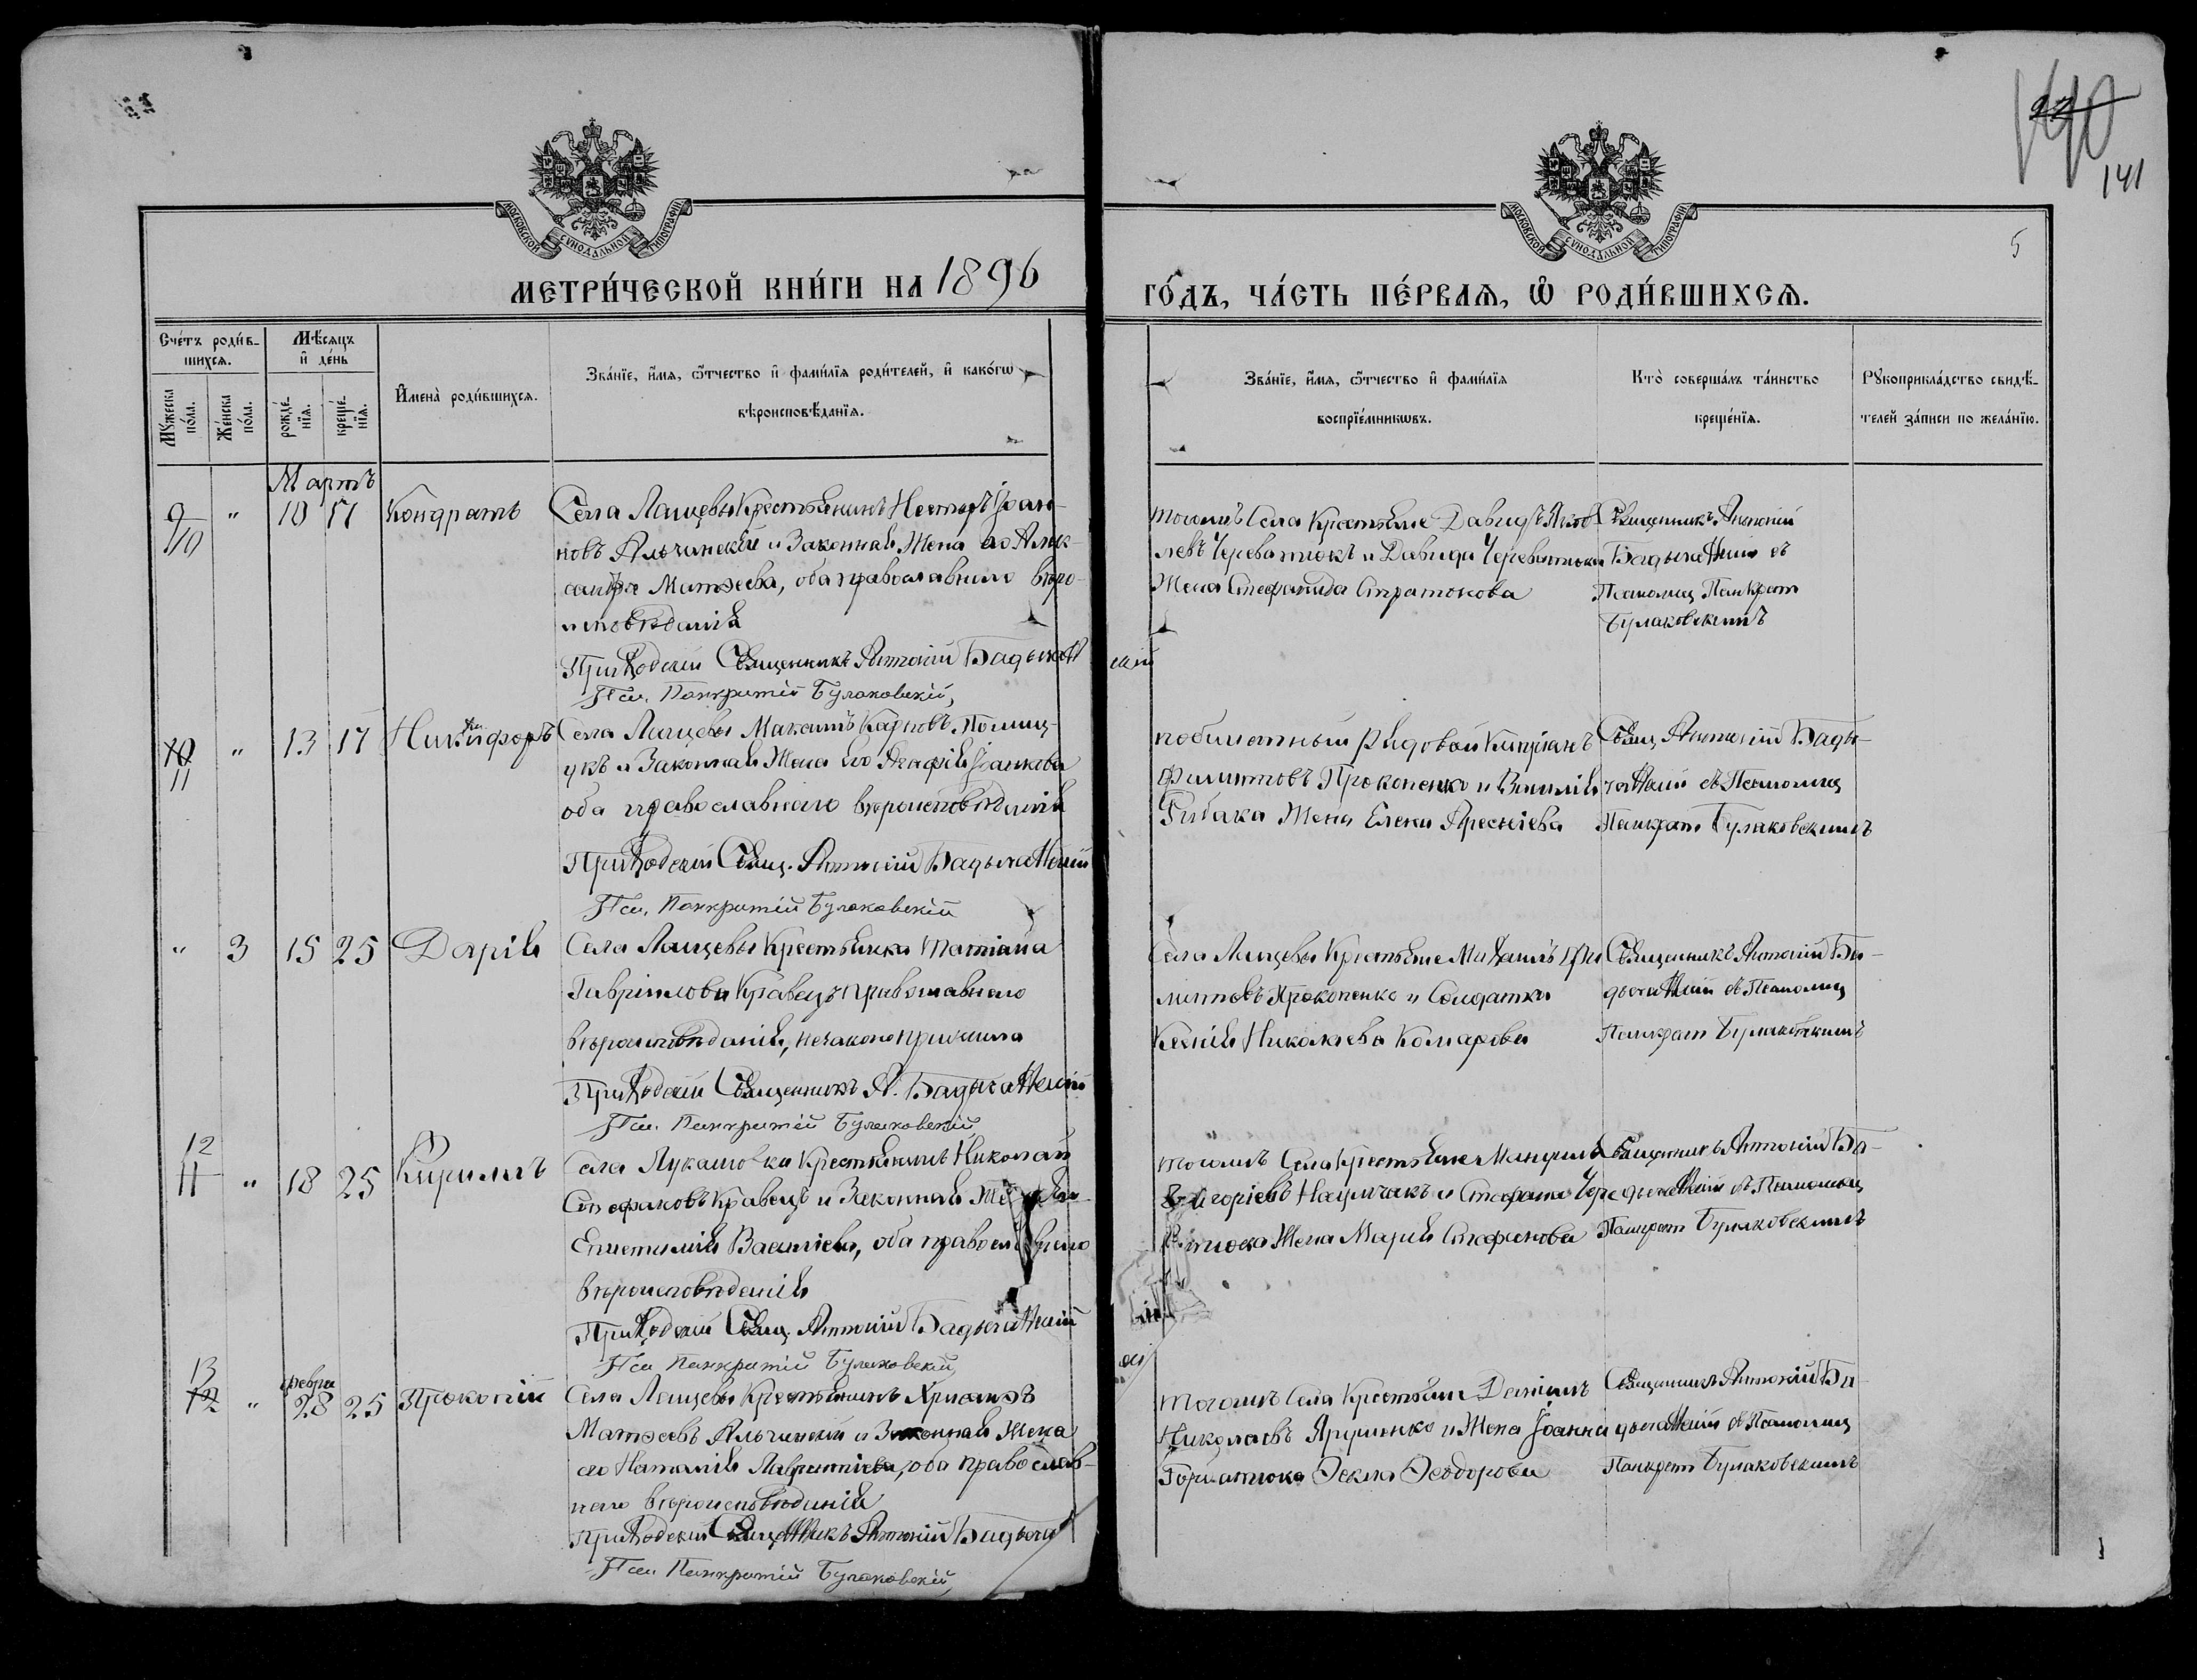 97
140
141
5
МОСКОВСКОЙ СѴНОДАЛЬНОЙ ТИПОГРАФІИ
МОСКОВСКОЙ СѴНОДАЛЬНОЙ ТИПОГРАФІИ
МЕТРИ́ЧЕСКОЙ КНИ́ГИ НА 1896
ГО́ДЪ, ЧА́СТЬ ПЕ́РВАЯ, Ѽ РОДИ́ВШИХСЯ.
Сче́тъ роди́в-
шихся.
Мꙋжеска по́ла.
Же́нска по́ла.
Мѣ́сяцъ
и҆ де́нь
рожде́-
нїя.
креще́-
нїя.
И҆мена̀ роди́вшихся.
Зва́нїе, и҆́мя, ѻ҆́тчество и҆ фами́лїя роди́телей, и҆ како́гѡ
вѣроисповѣ́данїя.
Зва́нїе, и҆́мя, ѻ҆́тчество и҆ фами́лїя
воспрїе́мникѡвъ.
Кто̀ соверша́лъ та́инство
креще́нїя.
Рꙋкоприкла́дство свидѣ́-
телей за́писи по жела́нїю.
Мартъ
9
10
"
10
17
Кондратъ
Села Лащевы Крестьянинъ Несторъ Іоан-
новъ Альчинскій и Законная Жена его Алек-
сандра Матѳеева, оба православнаго вѣро-
исповѣданія
Приходскій Священникъ Антоній
скій
Пса. Панкратій Булаковскій,
тогожъ Села Крестьяне Давидъ Яков-
левъ Череватюкъ и Давида Череватюка
Жена Стефанида Стратонова
Священникъ Антоній
съ
Псаломщ Панкрат
Булаковскимъ
10
11
"
13
17
Никифоръ
Села Лащевы Максимъ Карповъ Полищ-
укъ и Законная Жена его Агафія Іоаннова
оба православнаго вѣроисповѣданія
Приходскій Свящ. Антоній
Пса. Панкратій Булаковскій
рядовой Кипріанъ
Филиповъ Прокопенко и Василія
Рибака Жена Елена Арсеніева
Свящ Антоній
съ Псаломщ
Панкрат Булаковскимъ
"
3
15
25
Дарія
Села Лащевы Крестьянка Татіана
Гавріилова Кравецъ православнаго
вѣроисповѣданія, незаконоприжила
Приходскій Священникъ А.
Пса. Панкратій Булаковскій
Села Лащевы Крестьяне Михаилъ Фи-
липовъ Прокопенко и Солдатка
Ксенія Николаева Комарова
Священникъ Антоній
съ Псаломщ
Панкрат Булаковскимъ
12
11
"
18
25
Кириллъ
Села Лукашовка Крестьянинъ Николай
Стефановъ Кравецъ и Законная Жена
Епистимія Василіева, оба православнаго
вѣроисповѣданія
Приходскій Свящ. Антоній
Пса Панкратій Булаковскій
тогожъ Села Крестьяне Мануилъ
Григоріевъ Наумчакъ и Стефана Чере-
ватюка Жена Марія Стефанова
Священникъ Антоній
съ Псаломщ
Панкрат Булаковскимъ
13
12
"
февра
28
25
Прокопій
Села Лащевы Крестьянинъ Хрисанѳъ
Матѳеевъ Альчинскій и Законная Жена
его Наталія Лаврентіева, оба православ-
наго вѣроисповѣданія
Приходскій Священникъ Антоній
Пса. Панкратій Булаковскій,
тогожъ Села Крестьяне Даніилъ
Николаевъ Ярушенко и Жена Іоанна
Горбатюка Ѳекла Ѳеодорова
Священникъ Антоній
съ Псаломщ
Панкрат Булаковскимъ